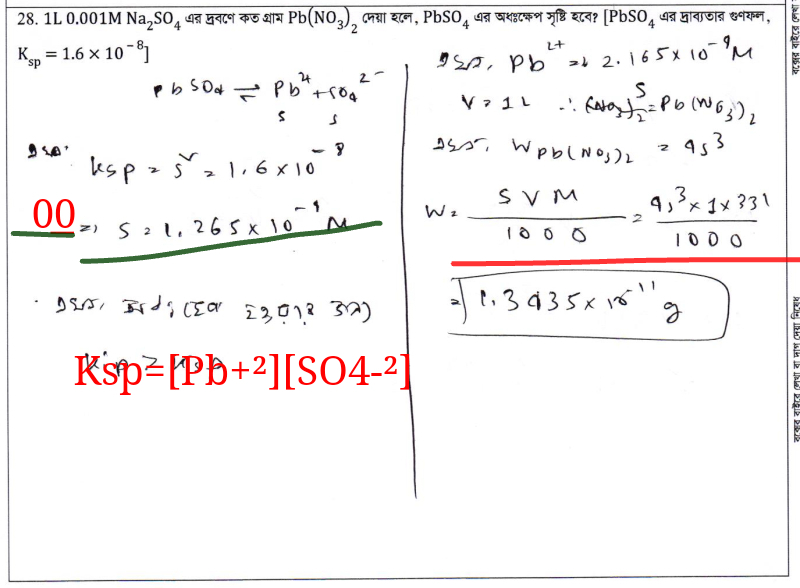 28. 1L 0.001M Na₂SO₄ এর দ্রবণে কত গ্রাম Pb(NO₃)₂ দেয়া হলে, PbSO₄ এর অধঃক্ষেপ সৃষ্টি হবে? [PbSO₄ এর দ্রাব্যতার গুণফল,
Ksp = 1.6 × 10⁻⁸]
PbSO₄ ⇌ Pb²⁺ + SO₄²⁻
s s
Ksp = s² = 1.6 × 10⁻⁸
00
=> S = 1.265 × 10⁻⁴ M
Ksp=[Pb+²][SO4-²]
Pb²⁺
M
V = 1L ∴
W Pb(NO₃)₂ = 4s³
W = SVM/1000 = 4s³×1×331/1000
= 1.3435×10⁻¹¹ g
বক্সের বাইরে লেখা বা দাগ দেয়া নিষেধ